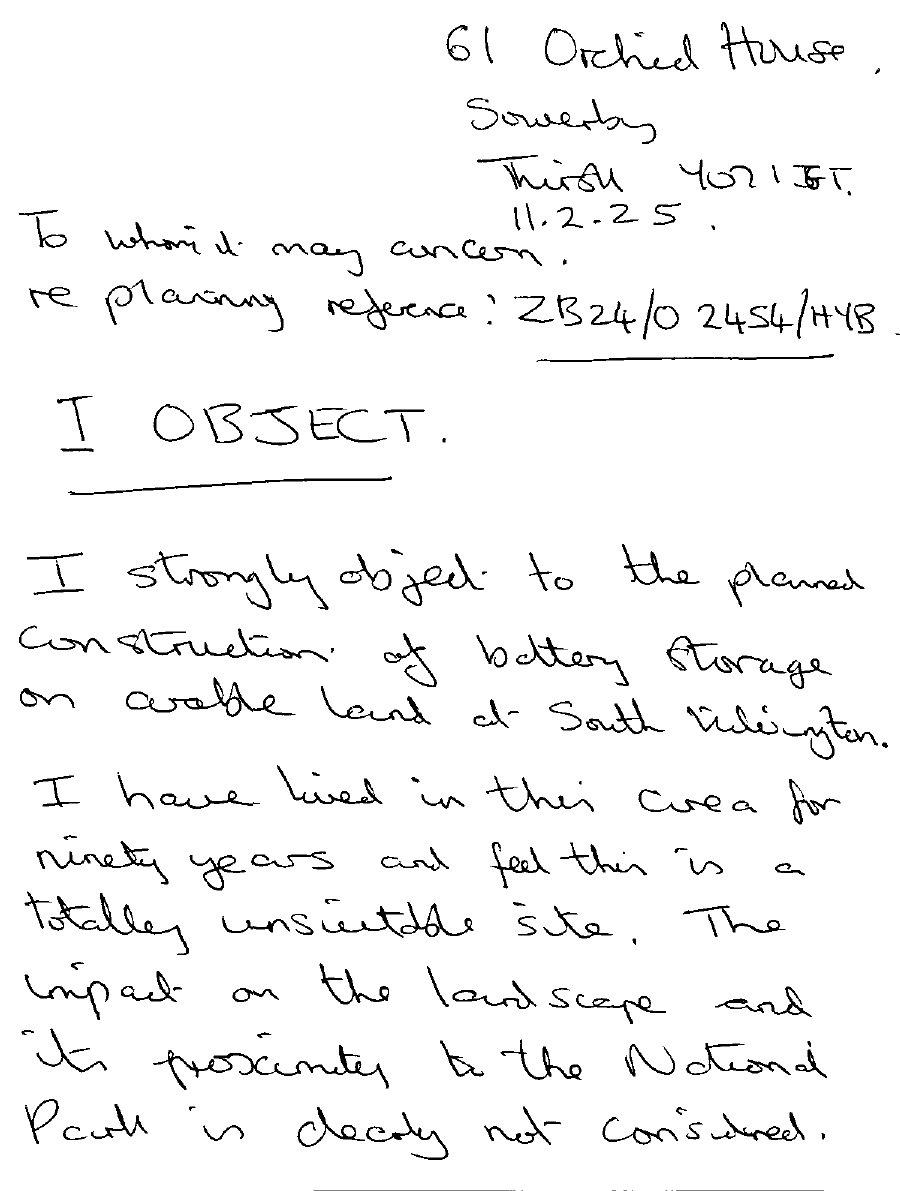 61 Orchid House.
Sowerby
Thirsk YO7 1
11.2.25.
To whom it may concern.
re planning reference: ZB24/02454/HYB.
I OBJECT.
I strongly object to the planned
construction of battery storage
on arable land at South Kilvington.
I have lived in this area for
ninety years and feel this is a
totally unsuitable site. The
impact on the landscape and
its proximity to the National
Park is clearly not considered.